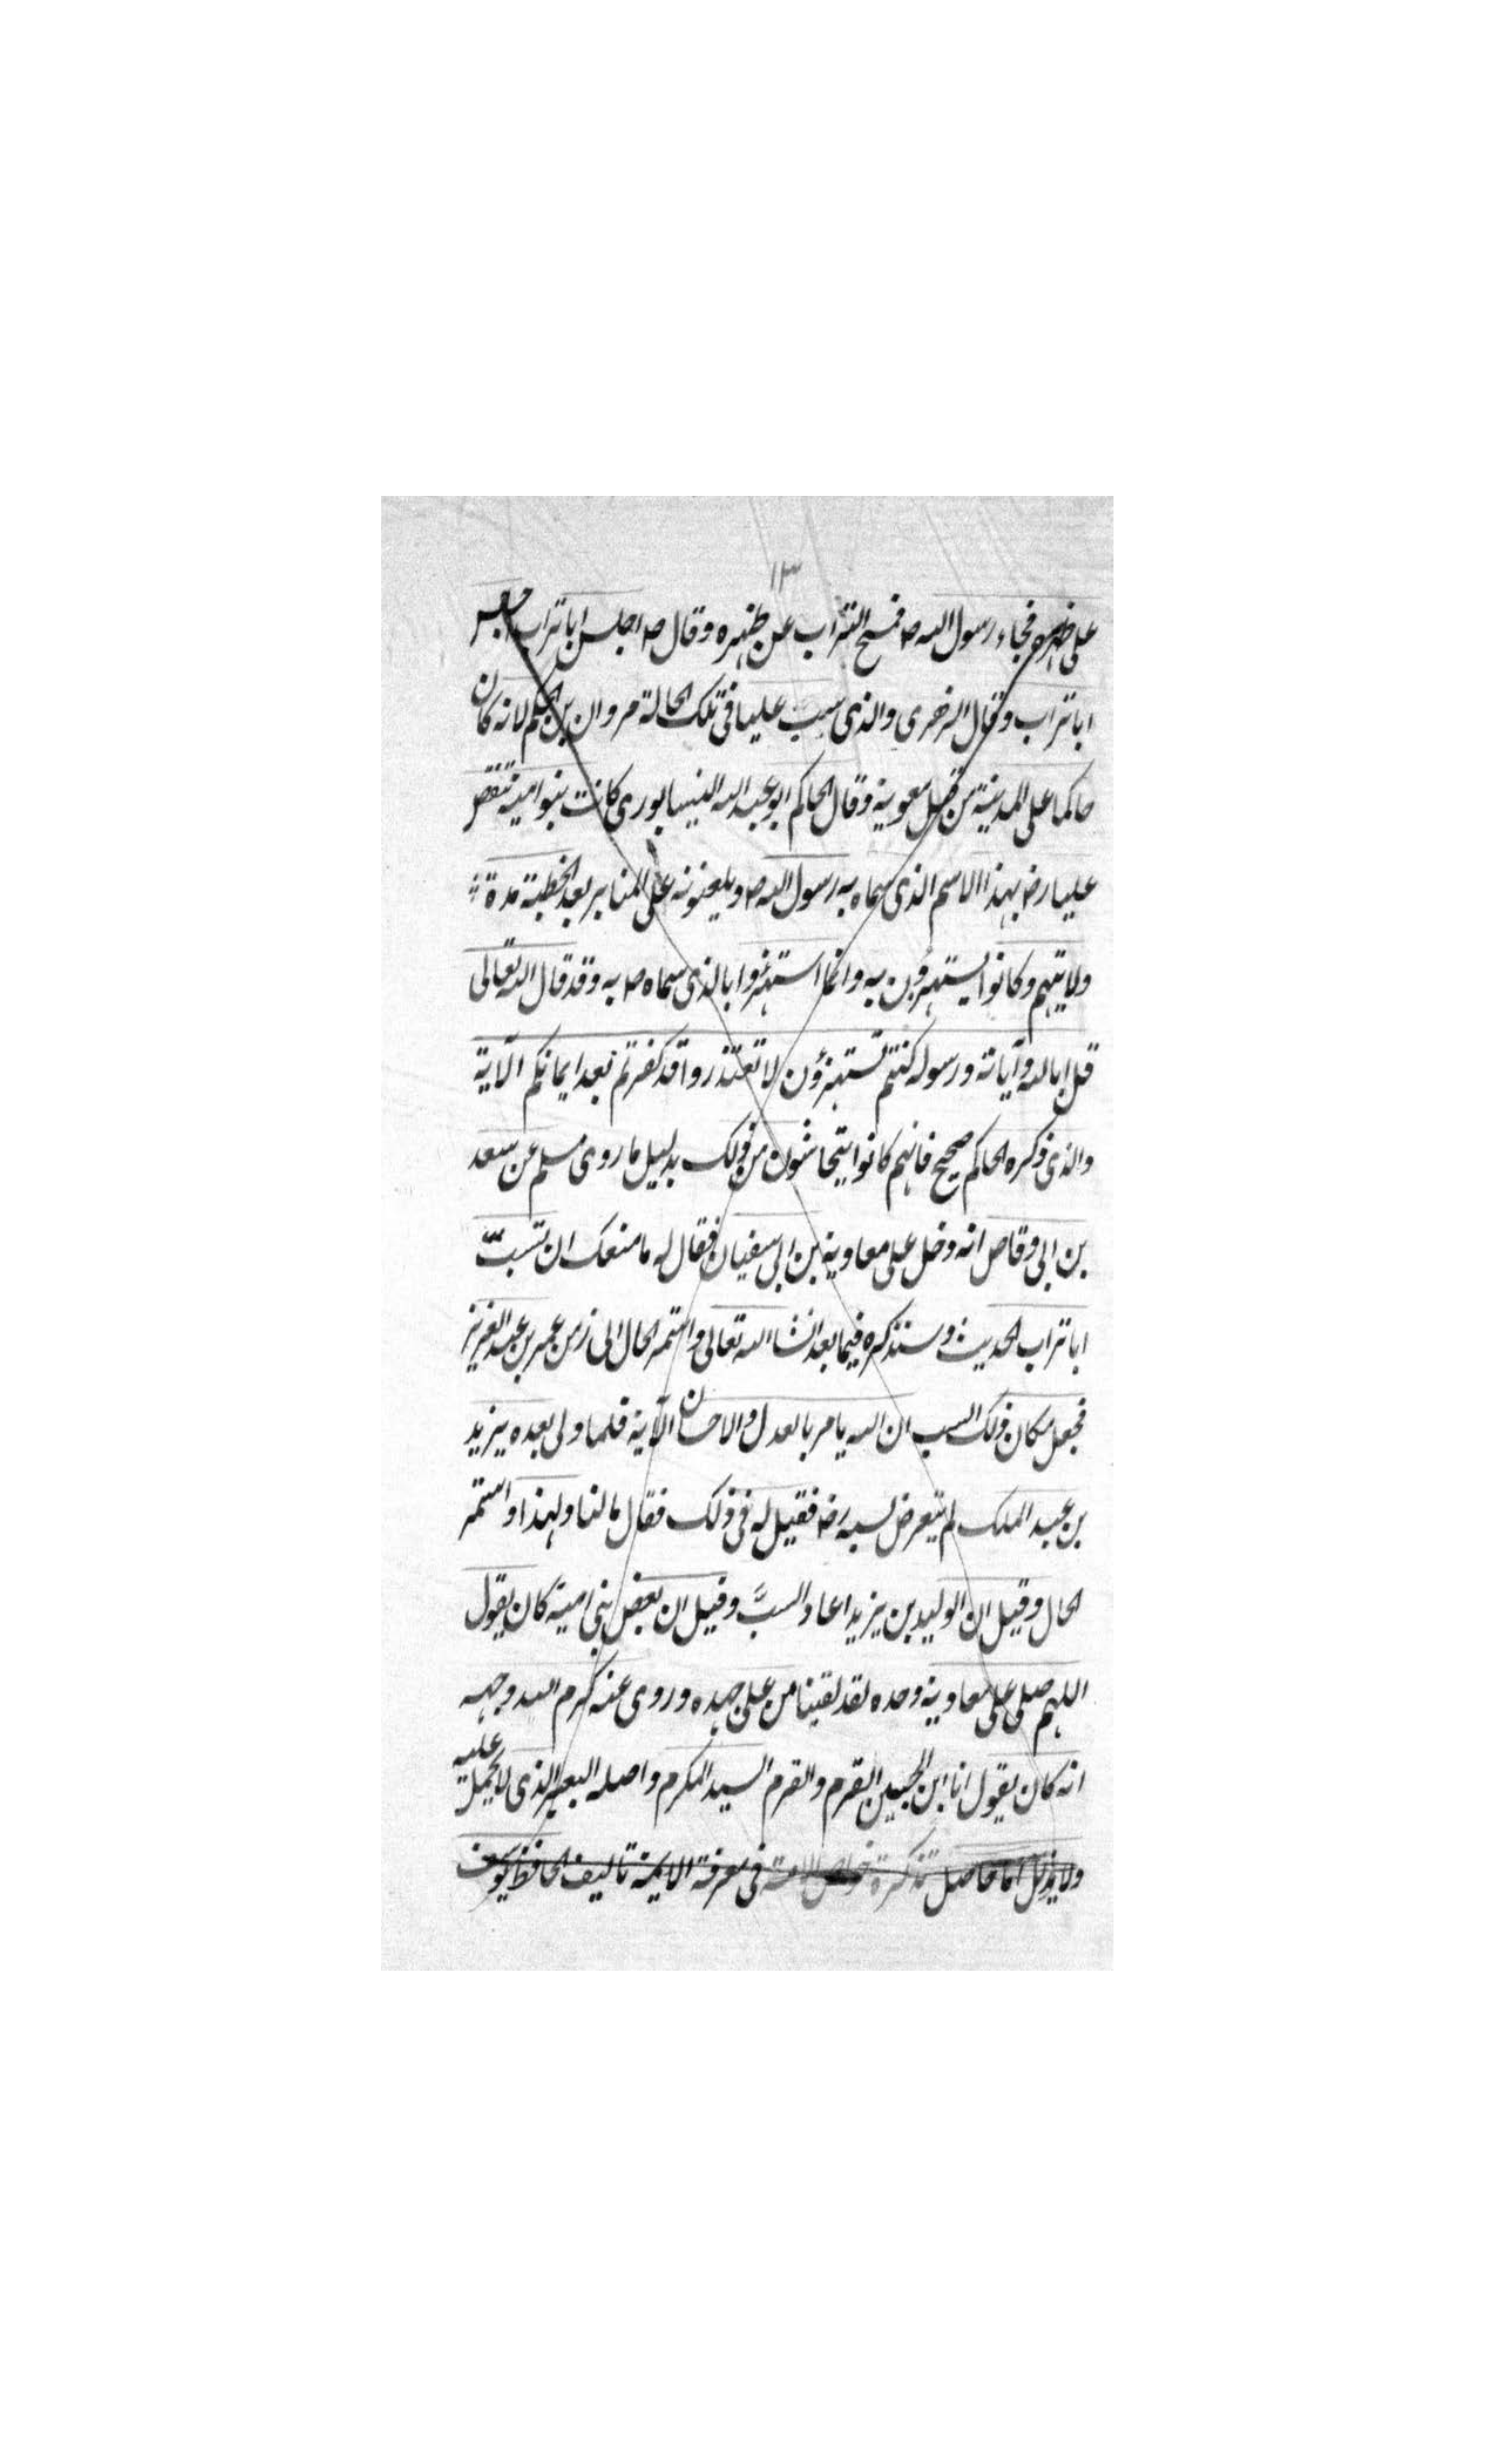 ١٣
على ظهره فجاء رسول الله ص فمسح التراب عن ظهره وقال ص اجلس ابا تراب اجلس
ابا تراب وقال الزهرى والذى سب عليا فى تلك الحالة مروان بن الحكم لانه كان
حاكما على المدينة من قبل معوية وقال الحاكم ابو عبد الله النيسابورى كانت بنو امية تنقص
عليا رض بهذا الاسم الذى سماه به رسول الله ص ويلعنونه على المنابر بعد الخطبة مدة
ولايتهم وكانوا يستهزؤن به وانما استهزؤا بالذى سماه ص به وقد قال الله تعالى
قل ابالله وآياته ورسوله كنتم تستهزؤن لا تعتذروا قد كفرتم بعد ايمانكم الآية
والذى ذكره الحاكم صحيح فانهم كانوا يتحاشون من ذلك بدليل ما روى مسلم عن سعد
بن ابى وقاص انه دخل على معاوية بن ابى سفيان فقال له ما منعك ان تسبّ
ابا تراب الحديث وسنذكره فيما بعد انشاء الله تعالى واستمر الحال الى زمن عمر بن عبد العزيز
فجعل مكان ذلك السب ان الله يامر بالعدل والاحسان الآية فلما ولى بعده يزيد
بن عبد الملك لم يتعرض لسبه رض فقيل له فى ذلك فقال مالنا ولهذا واستمر
الحال وقيل ان الوليد بن يزيد اعاد السبّ وقيل ان بعض بنى امية كان يقول
اللهم صلى على معاوية وحده لقد لقينا من على جهده وروى عنه كرم الله وجهه
انه كان يقول انا ابن الجبين القرم والقرم السيد المكرم واصله البعير الذى لا يحمل عليه
ولا يذلل اما حاصل تذكرة خواص الامة فى معرفة الائمة تاليف الحافظ يوسف